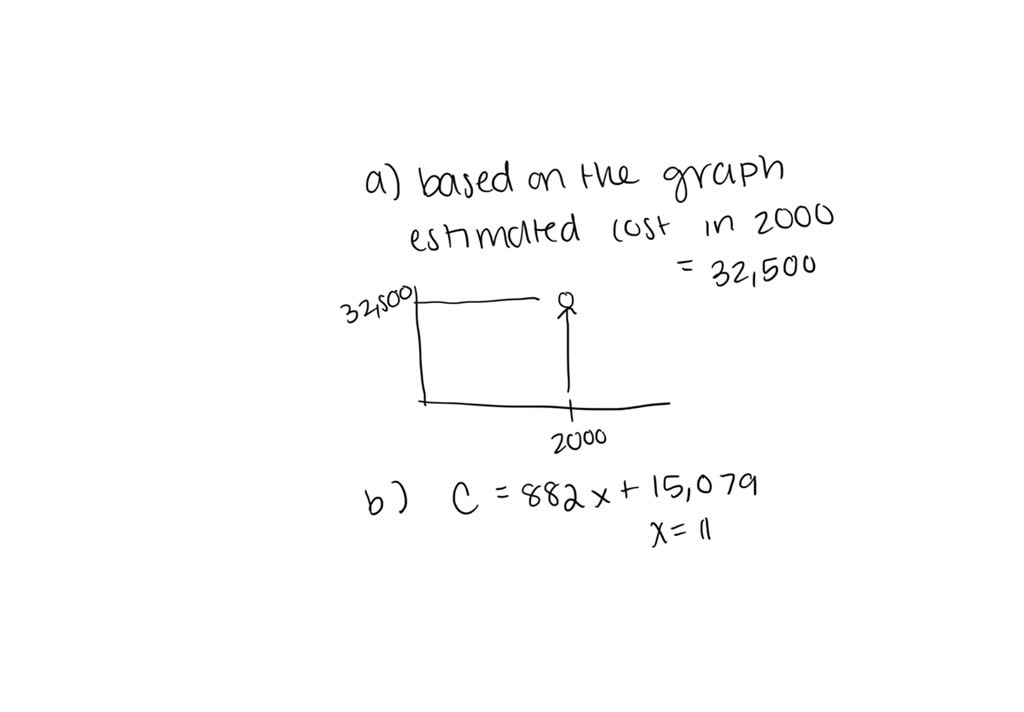 a) based on the graph
estimated cost in 2000
= 32,500
32,500
2000
b) C = 882x + 15,079
x = 11